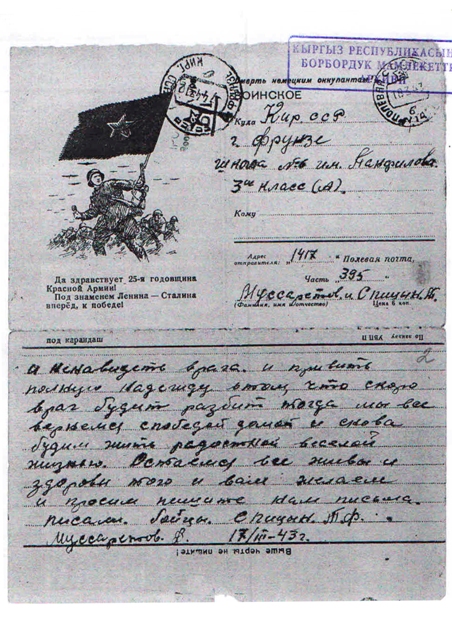 КЫРГЫЗ РЕСПУБЛИКАСЫН
БОРБОРДУК МАМЛЕКЕТТ
Смерть немецким оккупантам!
ВОИНСКОЕ
Куда Кир сср
г. Фрунзе
школа №6 им. Панфилова.
3ий класс (А).
Кому
Адрес отправителя: „1417 “ Полевая почта,
Часть 395
Муссаретов. и Спицын. Т.
(Фамилия, имя и отчество) Цена 6 коп.
Да здравствует 25-я годовщина
Красной Армии!
Под знаменем Ленина — Сталина
вперёд, к победе!
под карандаш
2
и ненавидеть врага. и привить
полную надежду в том, что скоро
враг будет разбит тогда мы все
вернемся спобедой домой и снова
будим жить радостной веселой
жизнью. Остаемся все живы и
здоровы того и вам желаем
и просим пишите нам письма.
писали. бойцы. Спицын. Т.Ф.
Муссаретов. Ф. 17/III-43 г.
Выше черты не пишите!